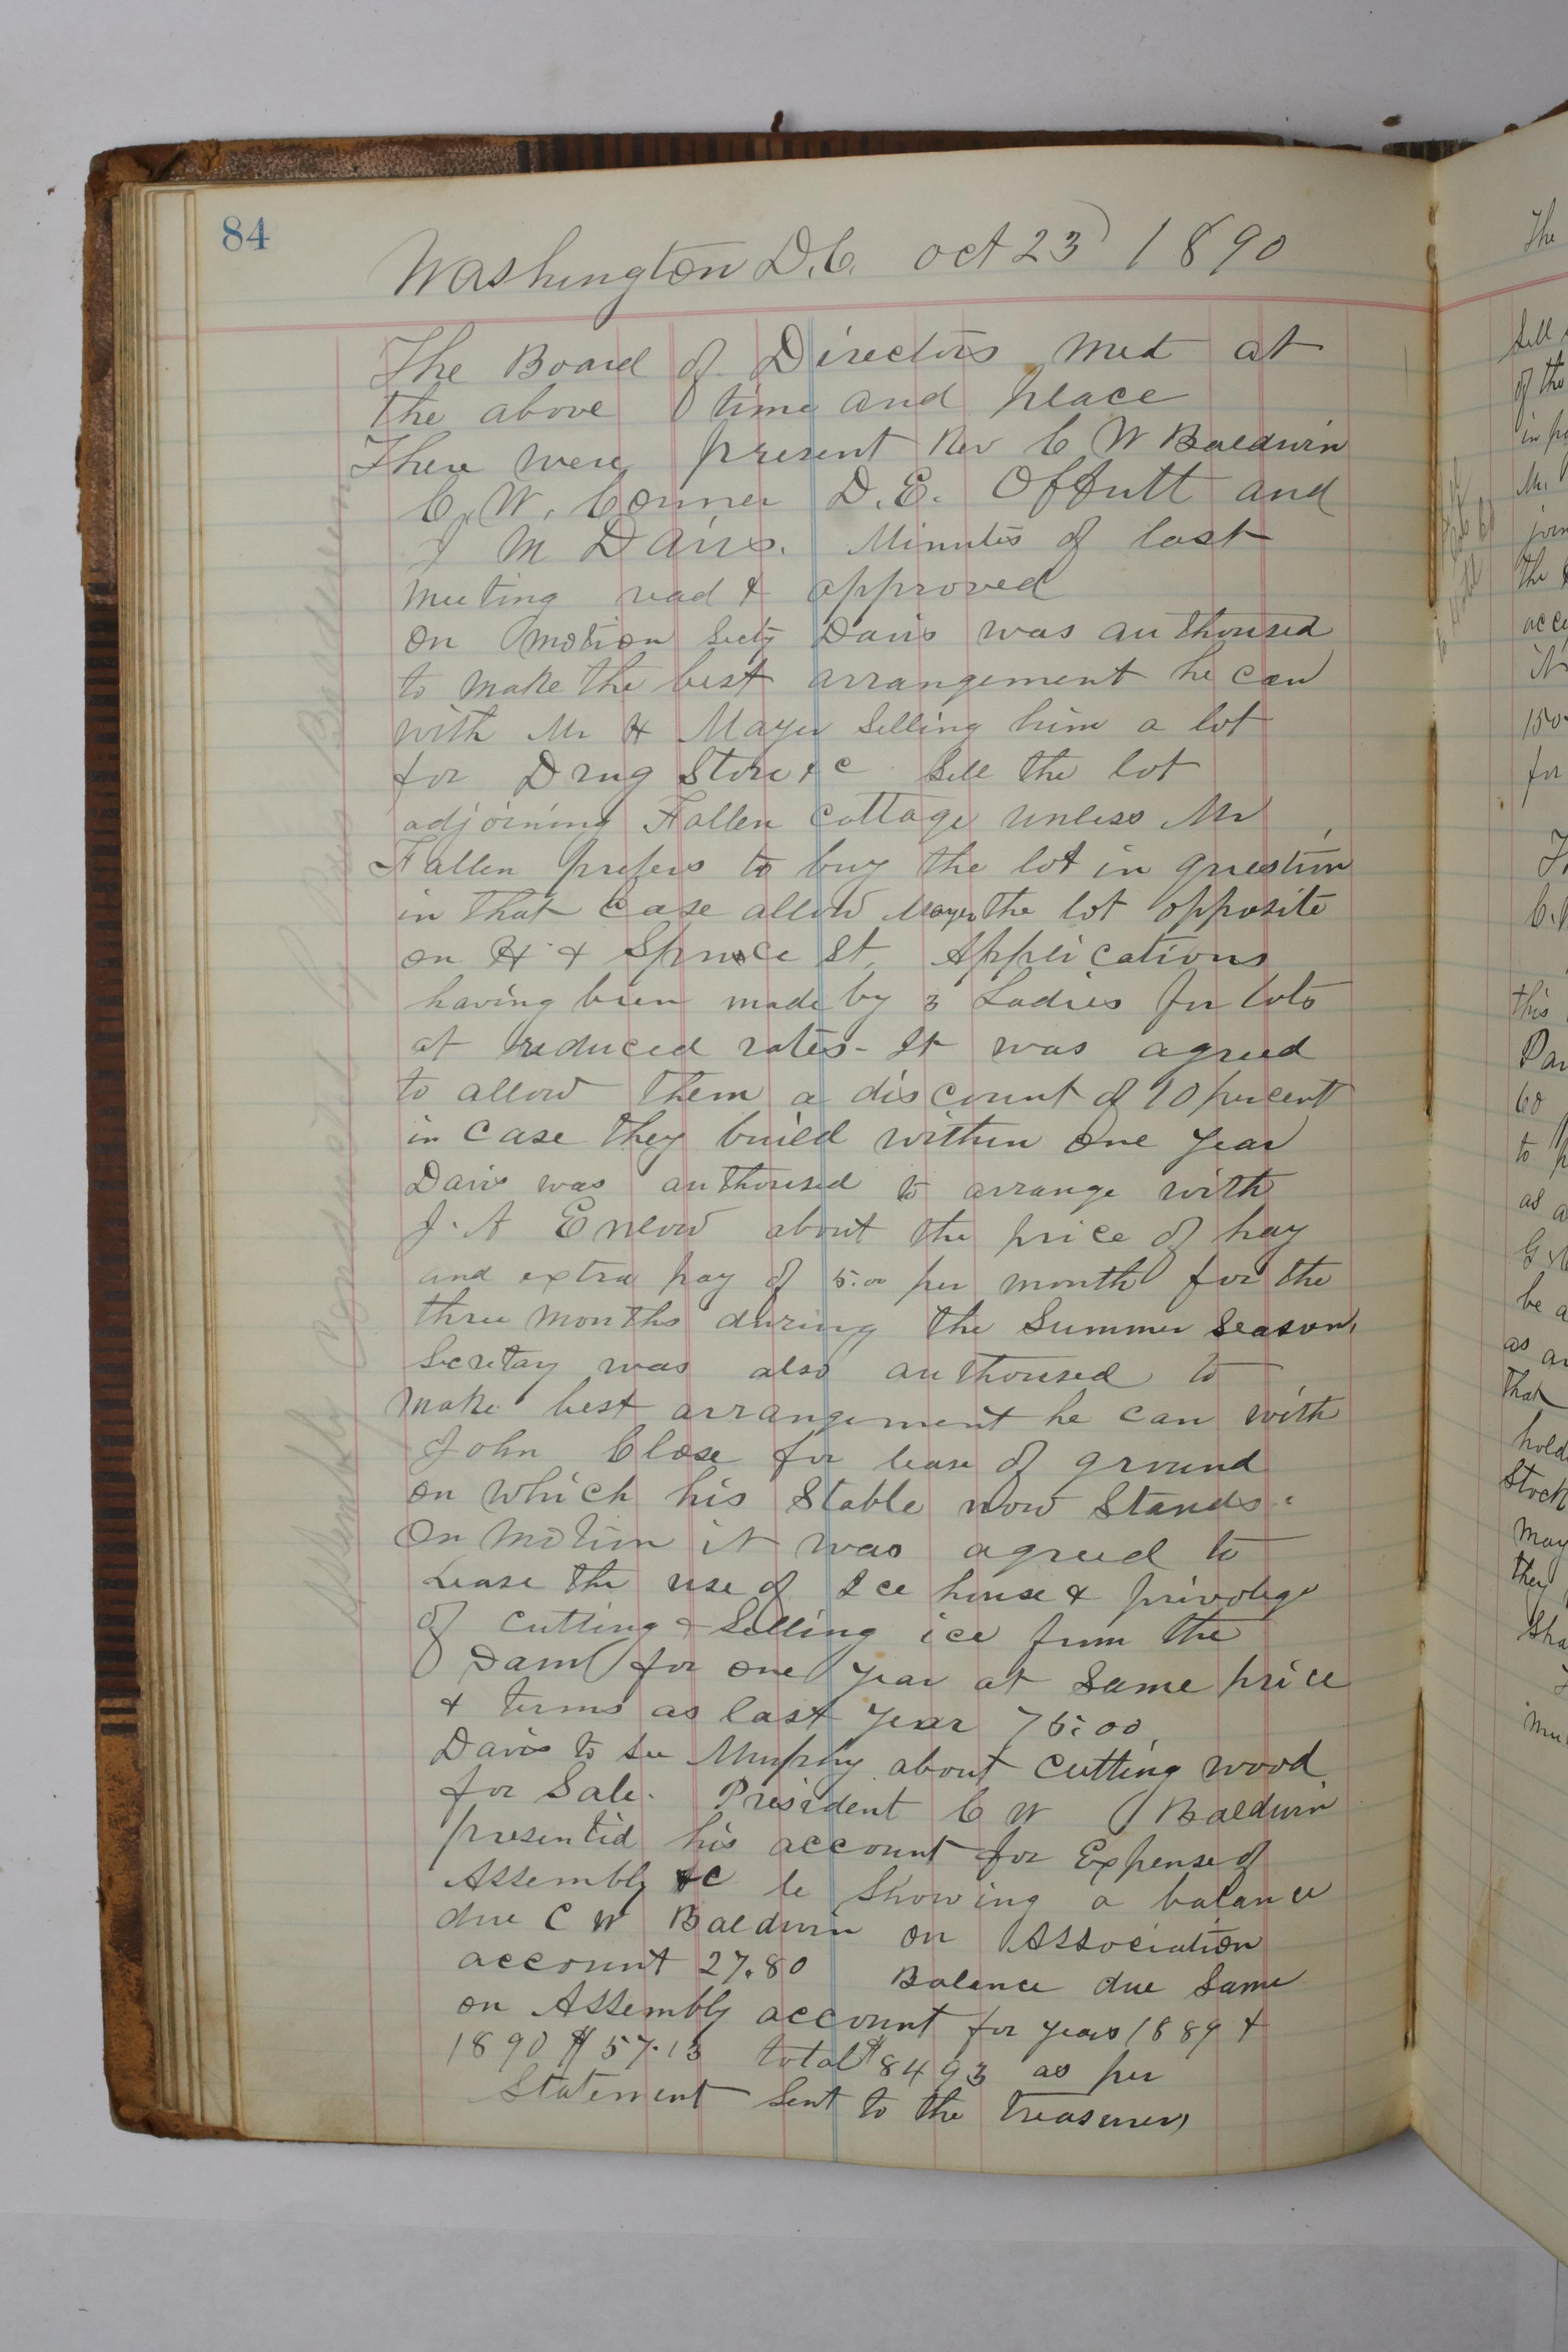 84
Washington D.C. Oct 23 1890
The Board of Directors met at
the above time and place
There were present Rev C W Baldwin
C. W. Conner D. E. Offutt and
J M Davis. Minutes of last
meeting read & approved
on motion Secty Davis was authorised
to make the best arrangement he can
with Mr H Mayer Selling him a lot
for Drug Store &c Sell the lot
adjoining Fallen Cottage unless Mr
Fallen prefers to buy the lot in question
in that case allow Mayer the lot opposite
on H & Spruce St. Applications
having been made by 3 Ladies for lots
at reduced rates - It was agreed
to allow them a discount of 10 percent
in case they build within one year
Davis was authorised to arrange with
J. A Enlow about the price of hay
and extra pay of 5.00 per month for the
three months during the Summer Season,
Secretay was also authorised to
make best arrangement he can with
John Close for lease of ground
on which his Stable now Stands.
On motion it was agreed to
Lease the use of Ice house & privolege
of cutting & Selling ice from the
Dam for one year at Same price
& terms as last year 75.00
Davis to see Murphy about cutting wood
for Sale. President C W Baldwin
presented his account for Expense of
Assembly &c Showing a balance
due C W Baldwin on Association
account 27.80 Balance due Same
on Assembly account for years 1889 &
1890 $57.13 total $8493 as per
Statement Sent to the Treasurer,
Assembly Conducted by Baldwin
The
Sell
of the
Mr.
join
the
150
for
this
60
to
as a
be a
as an
that
hold
Stock
may
they